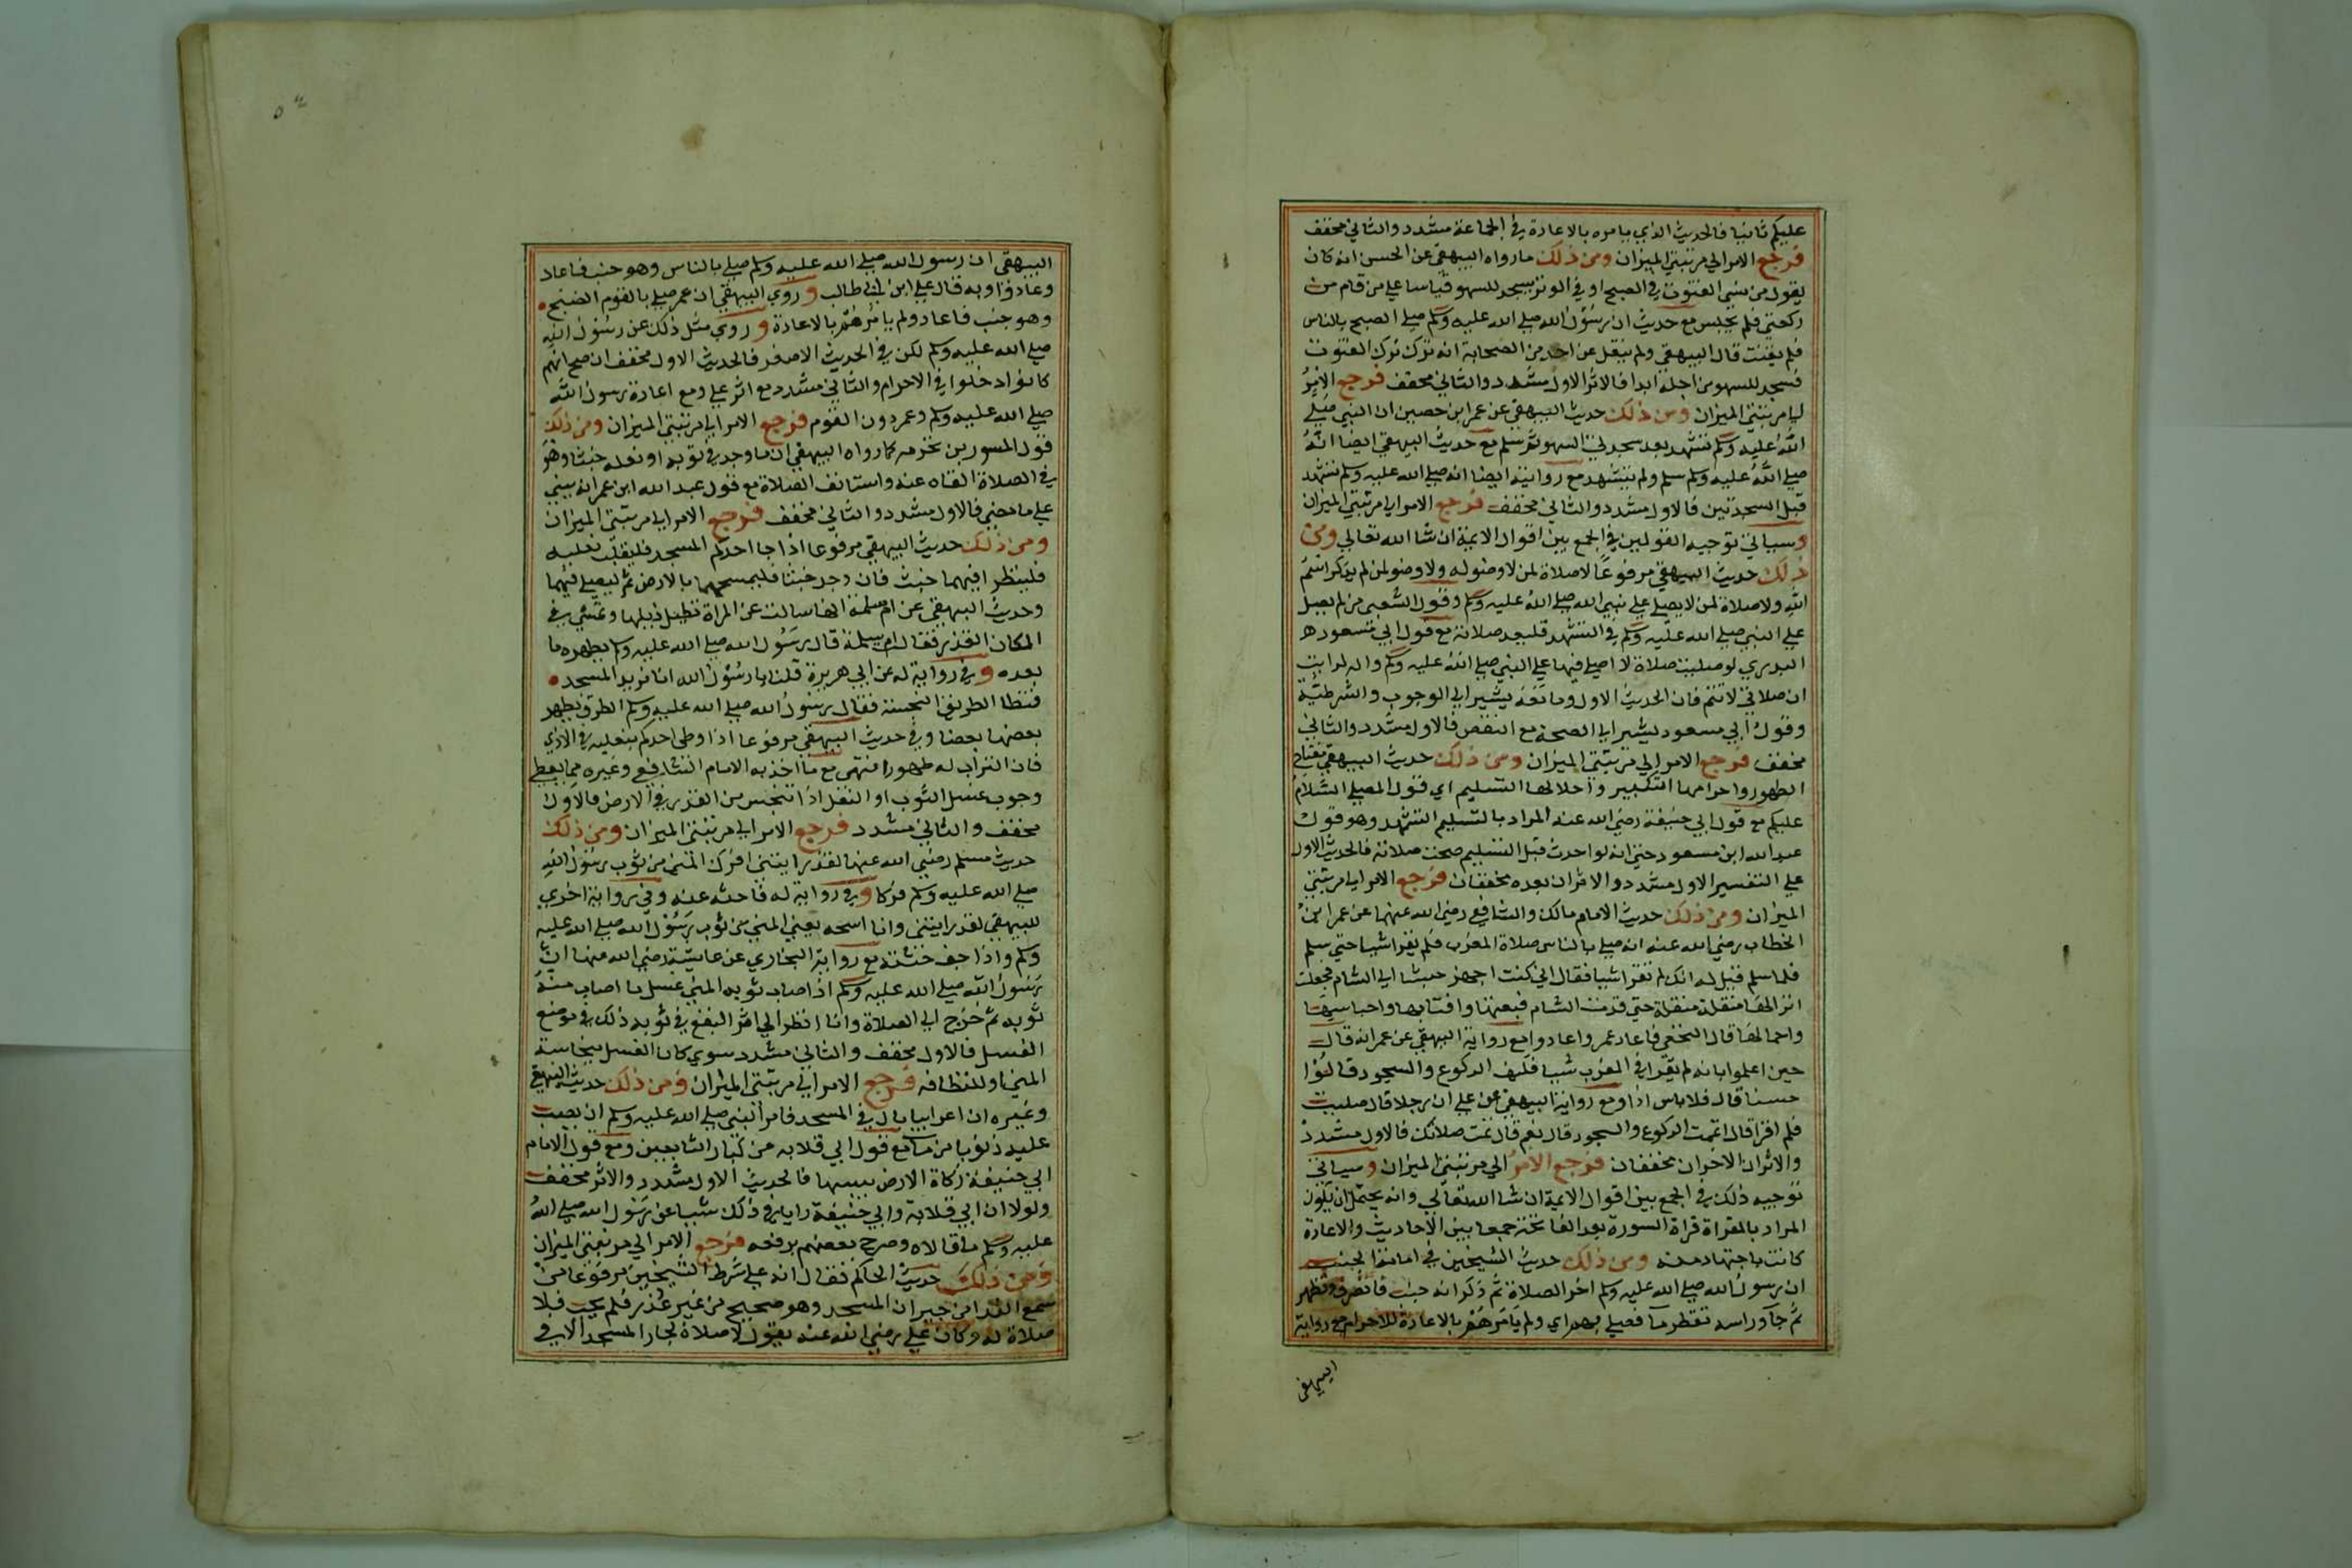 عليكم ثانيا فالحديث الذي يامره بالاعادة في الجماعة مشدد والثاني مخفف
فرجع الامر الي مرتبتي الميزان ومن ذلك ما رواه البيهقي عن الحسن انه كان
يقول من نسي القنوت في الصبح او في الوتر يسجد للسهو قياسا علي من قام من
ركعتي فلم يجلس مع حديث ان رسول الله صلي الله عليه وسلم صلي الصبح بالناس
فلم يقنت قال البيهقي ولم ينقل عن احد من الصحابة انه ترك ترك القنوت
فسجد للسهو من اجله ابدا فالاثر الاول مشدد والثاني مخفف فرجع الامر
الي مرتبتي الميزان ومن ذلك حديث البيهقي عن عمر ابن حصين ان النبي صلي
الله عليه وسلم تشهد بعد سجدتي السهو ثم سلم مع حديث البيهقي ايضا انه
صلي الله عليه وسلم سلم ولم يتشهد مع روايته ايضا انه صلي الله عليه وسلم تشهد
قبل السجدتين فالاول مشدد والثاني مخفف فرجع الامر الي مرتبتي الميزان
وسياتي توجيه القولين في الجمع بين اقوال الايمة ان شا الله تعالي ومن
ذلك حديث البيهقي مرفوعا لا صلاة لمن لا وضو له ولا وضو لمن لم يذكر اسم
الله ولا صلاة لمن لا يصلي علي نبي الله صلي الله عليه وسلم وقول الشعبي من لم يصل
علي النبي صلي الله عليه وسلم في التشهد فليعد صلاته مع قول ابي مسعود ه
البدري لو صليت صلاة لا اصلي فيها علي النبي صلي الله عليه وسلم واله لرايت
ان صلاتي لا تتم فان الحديث الاول وما بعده يشير الي الوجوب والشرطية
وقول ابي مسعود يشير الي الصحة مع النقص فالاول مشدد والثاني
مخفف فرجع الامر الي مرتبتي الميزان ومن ذلك حديث البيهقي مفتاح
الطهور واحرامها التكبير واحلالها التسليم اي قول المصلي السلام
عليكم مع قول ابي حنيفة رضي الله عنه المراد بالتسليم التشهد وهو قول
عبد الله ابن مسعود حتي انه لو احدث قبل التسليم صحت صلاته فالحديث الاول
علي التفسير الاول مشدد والاثران بعده مخففان فرجع الامر الي مرتبتي
الميزان ومن ذلك حديث الامام مالك والشافعي رضي الله عنهما عن عمر ابن
الخطاب رضي الله عنه انه صلي بالناس صلاة المغرب فلم يقرا شيا حتي سلم
فلما سلم قيل له انك لم تقرا شيا فقال اني كنت اجهز جيشا الي الشام فجعلت
انزلها منقلة منقلة حتي قدمت الشام فبعتها واقتابها واحلاسها
واحمالها قال النخعي فاعاد عمر واعادوا مع رواية البيهقي عن عمر انه قال
حين اعلموا بانه لم يقرا في المغرب شيا فكيف الركوع والسجود قالوا
حسنا قال فلا باس اذا ومع رواية البيهقي عن علي ان رجلا قال صليت
فلم اقرا قال اتممت الركوع والسجود قال نعم قال تمت صلاتك فالاول مشدد
والاثران الاخران مخففان فرجع الامر الي مرتبتي الميزان وسياتي
توجيه ذلك في الجمع بين اقوال الايمة ان شا الله تعالي وانه يحتمل ان يكون
المراد بالقراة قراة السورة بعد الفاتحة جمعا بين الاحاديث والاعادة
كانت باجتهاد منه ومن ذلك حديث الشيخين في امامة الجنب
ان رسول الله صلي الله عليه وسلم اخر الصلاة ثم ذكر انه جنب فانصرف وتطهر
ثم جآ وراسه تقطر مآ فصلي بهم اي ولم يامرهم بالاعادة للاحرام مع رواية
البيهقي
البيهقي ان رسول الله صلي الله عليه وسلم صلي بالناس وهو جنب فاعاد
وعادوا وبه قال علي ابن ابي طالب وروي البيهقي ان عمر صلي بالقوم الصبح
وهو جنب فاعاد ولم يامرهم بالاعادة وروي مثل ذلك عن رسول الله
صلي الله عليه وسلم لكن في الحديث الاصفر فالحديث الاول مخفف ان صح انهم
كانوا دخلوا في الاحرام والثاني مشدد مع اثر علي ومع اعادة رسول الله
صلي الله عليه وسلم وعمر دون القوم فرجع الامر الي مرتبتي الميزان ومن ذلك
قول المسور بن مخرمه كما رواه البيهقي ان ما وجد في ثوبه او نعله خبثا وهو
في الصلاة القاه عنه واستانف الصلاة مع قول عبد الله ابن عمر انه يبني
علي ما مضي فالاول مشدد والثاني مخفف فرجع الامر الي مرتبتي الميزان
ومن ذلك حديث البيهقي مرفوعا اذا جا احدكم المسجد فليقلب نعليه
فلينظر افيهما خبث فان وجد خبثا فليمسحهما بالارض ثم ليصلي فيهما
وحديث البيهقي عن ام سلمة انها سالت عن المراة تطيل ذيلها وتمشي في
المكان القذر فقال ام سلمة قال رسول الله صلي الله عليه وسلم يطهره ما
بعده وفي رواية له عن ابي هريرة قلنا يا رسول الله انا نريد المسجد
فنطا الطريق النجسة فقال رسول الله صلي الله عليه وسلم الطرق يطهر
بعضها بعضا وفي حديث البيهقي مرفوعا اذا وطي احدكم بنعليه في الاذي
فان التراب له طهورا انتهي مع ما اخذ به الامام الشافعي وغيره مما يعطي
وجوب غسل الثوب او النعل اذا تنجس من القذر في الارض فالاول
مخفف والثاني مشدد فرجع الامر الي مرتبتي الميزان ومن ذلك
حديث مسلم رضي الله عنها لقد رايتني افرك المني من ثوب رسول الله
صلي الله عليه وسلم فركا وفي رواية له فاحته عنه وفي رواية اخري
للبيهقي لقد رايتني وانا اسحه يعني المني من ثوب رسول الله صلي الله عليه
وسلم واذا جف حتته مع رواية البخاري عن عايشة رضي الله عنها ان
رسول الله صلي الله عليه وسلم اذا اصاب ثوبه المني غسل ما اصاب منه
ثوبه ثم خرج الي الصلاة وانا انظر الي اثر البقع في ثوبه ذلك في موضع
الغسل فالاول مخفف والثاني مشدد سوي كان الغسل نجاسة
المني او للنظافه فرجع الامر الي مرتبتي الميزان ومن ذلك حديث البيهقي
وغيره ان اعرابيا بال في المسجد فامر النبي صلي الله عليه وسلم ان يصب
عليه ذنوبا من ما مع قول ابي قلابه من كبار التابعين ومع قول الامام
ابي حنيفة زكاة الارض يبسها فالحديث الاول مشدد والاثر مخفف
ولولا ان ابي قلابة وابي حنيفة رايا في ذلك شيا عن رسول الله صلي الله
عليه وسلم ما قالاه وصرح بعضهم برفعه فرجع الامر الي مرتبتي الميزان
ومن ذلك حديث الحاكم فقال انه علي شرط الشيخين مرفوعا من
سمع الندا من جيران المسجد وهو صحيح من غير عذر فلم يجب فلا
صلاة له وكان علي رضي الله عنه يقول لا صلاة لجار المسجد الا في